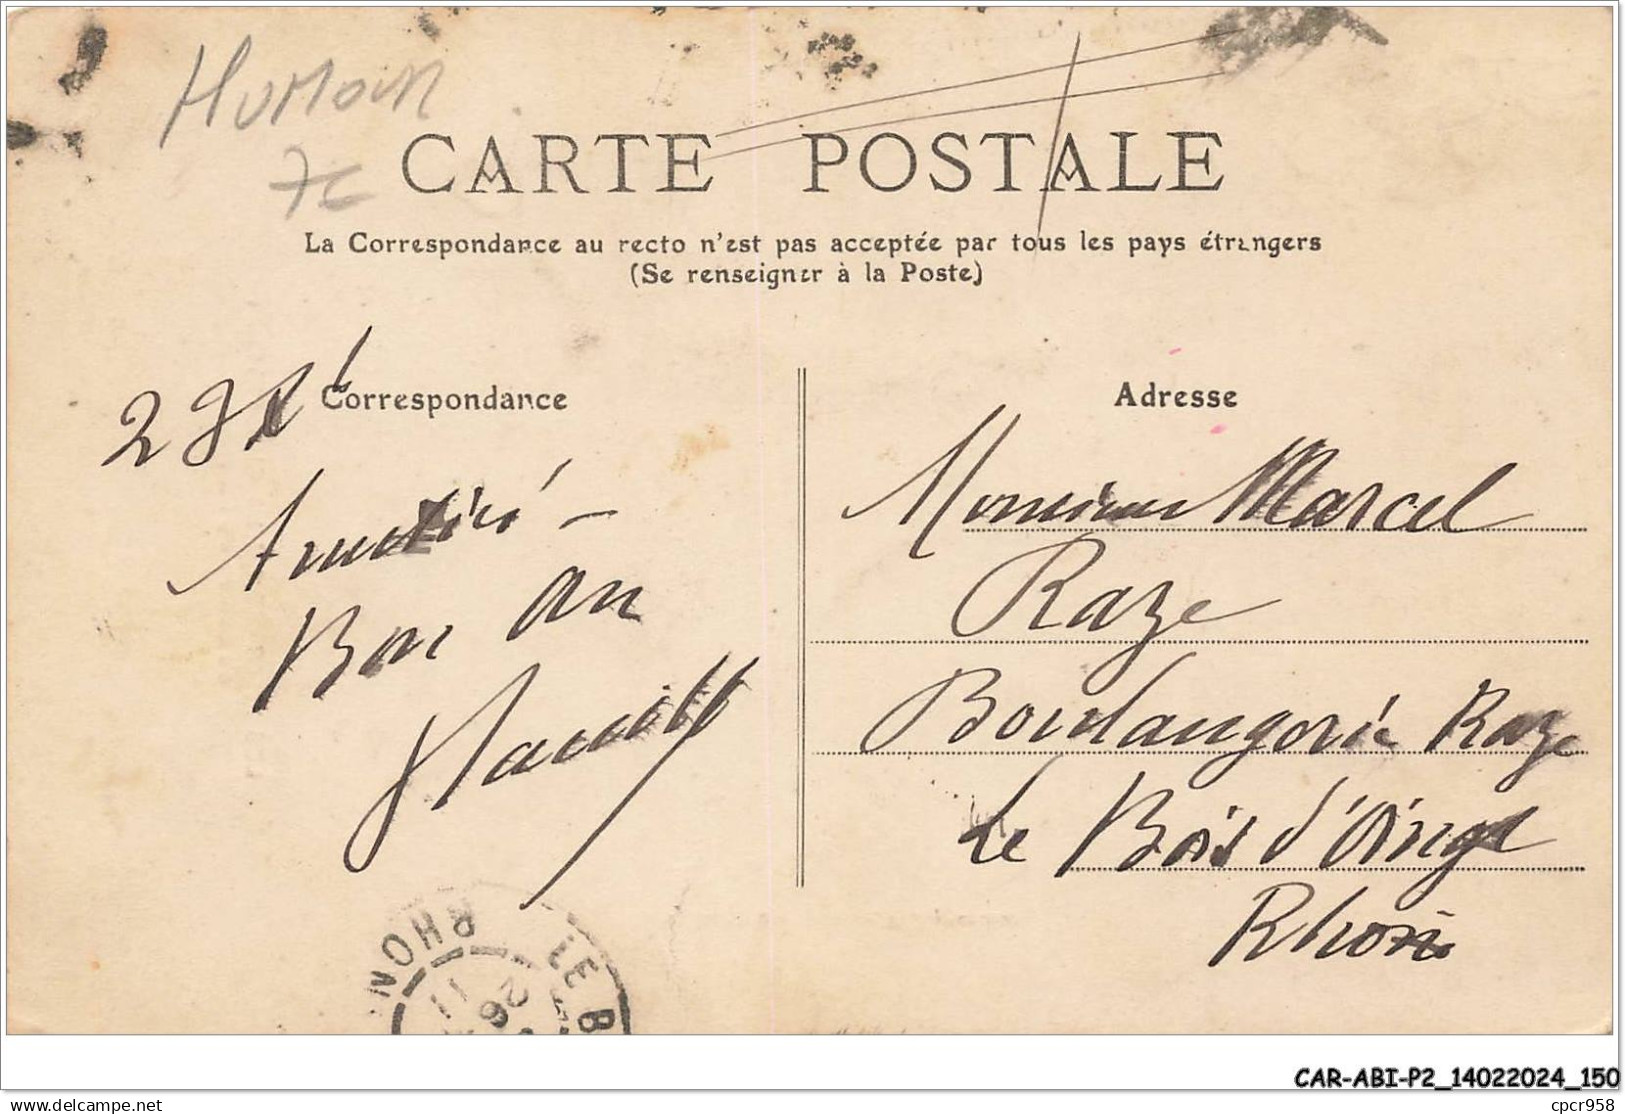 Humour
7c
CARTE POSTALE
La Correspondance au recto n'est pas acceptée par tous les pays étrangers
(Se renseigner à la Poste)
Correspondance
Adresse
Amitiés -
Bon an
Monsieur Marcel
Raze
Boulangerie Raze
Le Bois d'Oingt
Rhône
RHON
LE B
26
11
CAR-ABI-P2_14022024_150
cpcr958